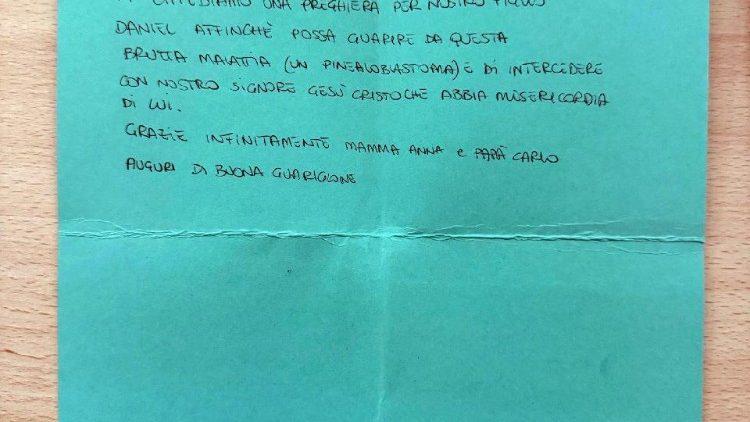 CHIEDIAMO UNA PREGHIERA PER NOSTRO FIGLIO
DANIEL AFFINCHÈ POSSA GUARIRE DA QUESTA
BRUTTA MALATTIA (UN PINEALOBLASTOMA) E DI INTERCEDERE
CON NOSTRO SIGNORE GESÙ CRISTO CHE ABBIA MISERICORDIA
DI LUI.
GRAZIE INFINITAMENTE MAMMA ANNA e PAPÀ CARLO
AUGURI DI BUONA GUARIGIONE